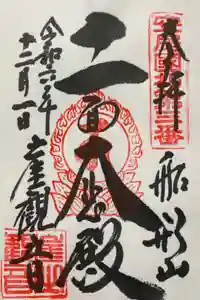 奉拝
船形山
十一面大悲殿
令和六年
十二月一日
崖觀音